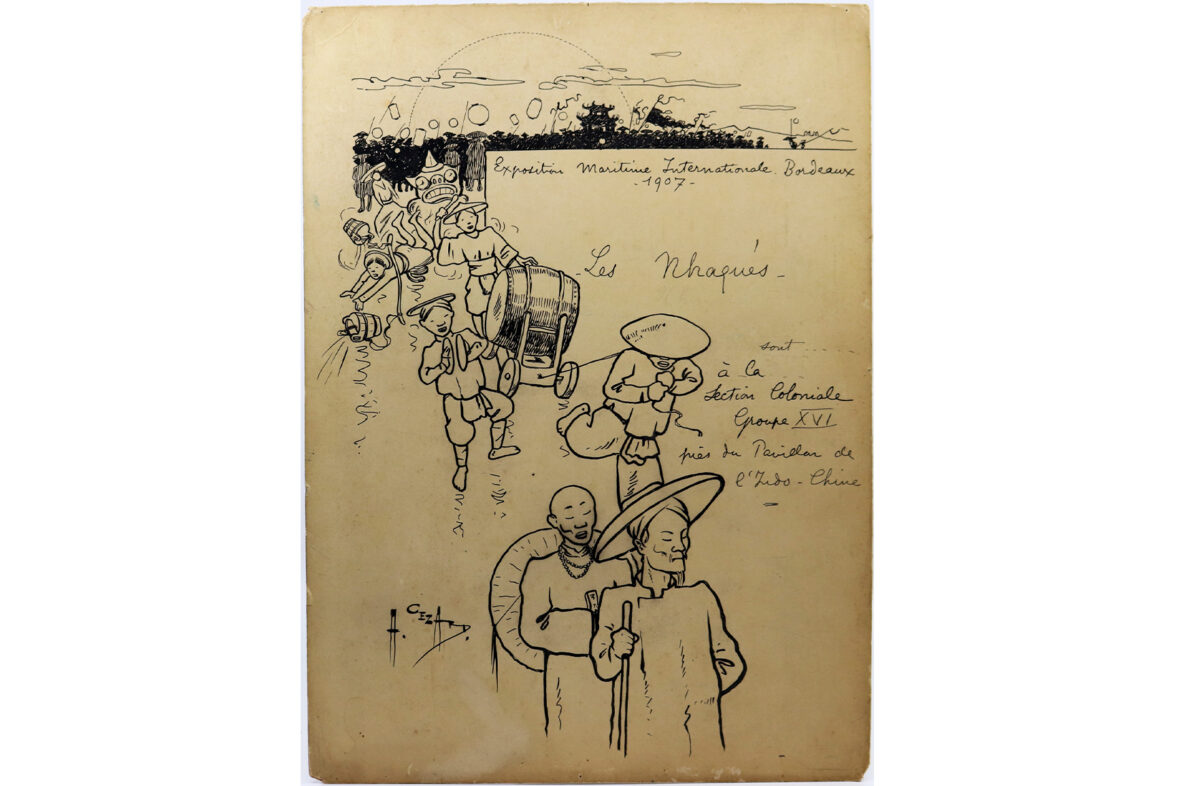 Exposition Maritime Internationale. Bordeaux
- 1907 -
- Les Nhaqués -
sont ......
à la ...
Section Coloniale
Groupe XVI
près du Pavillon de
l'Indo-Chine
A. CÉZARD.